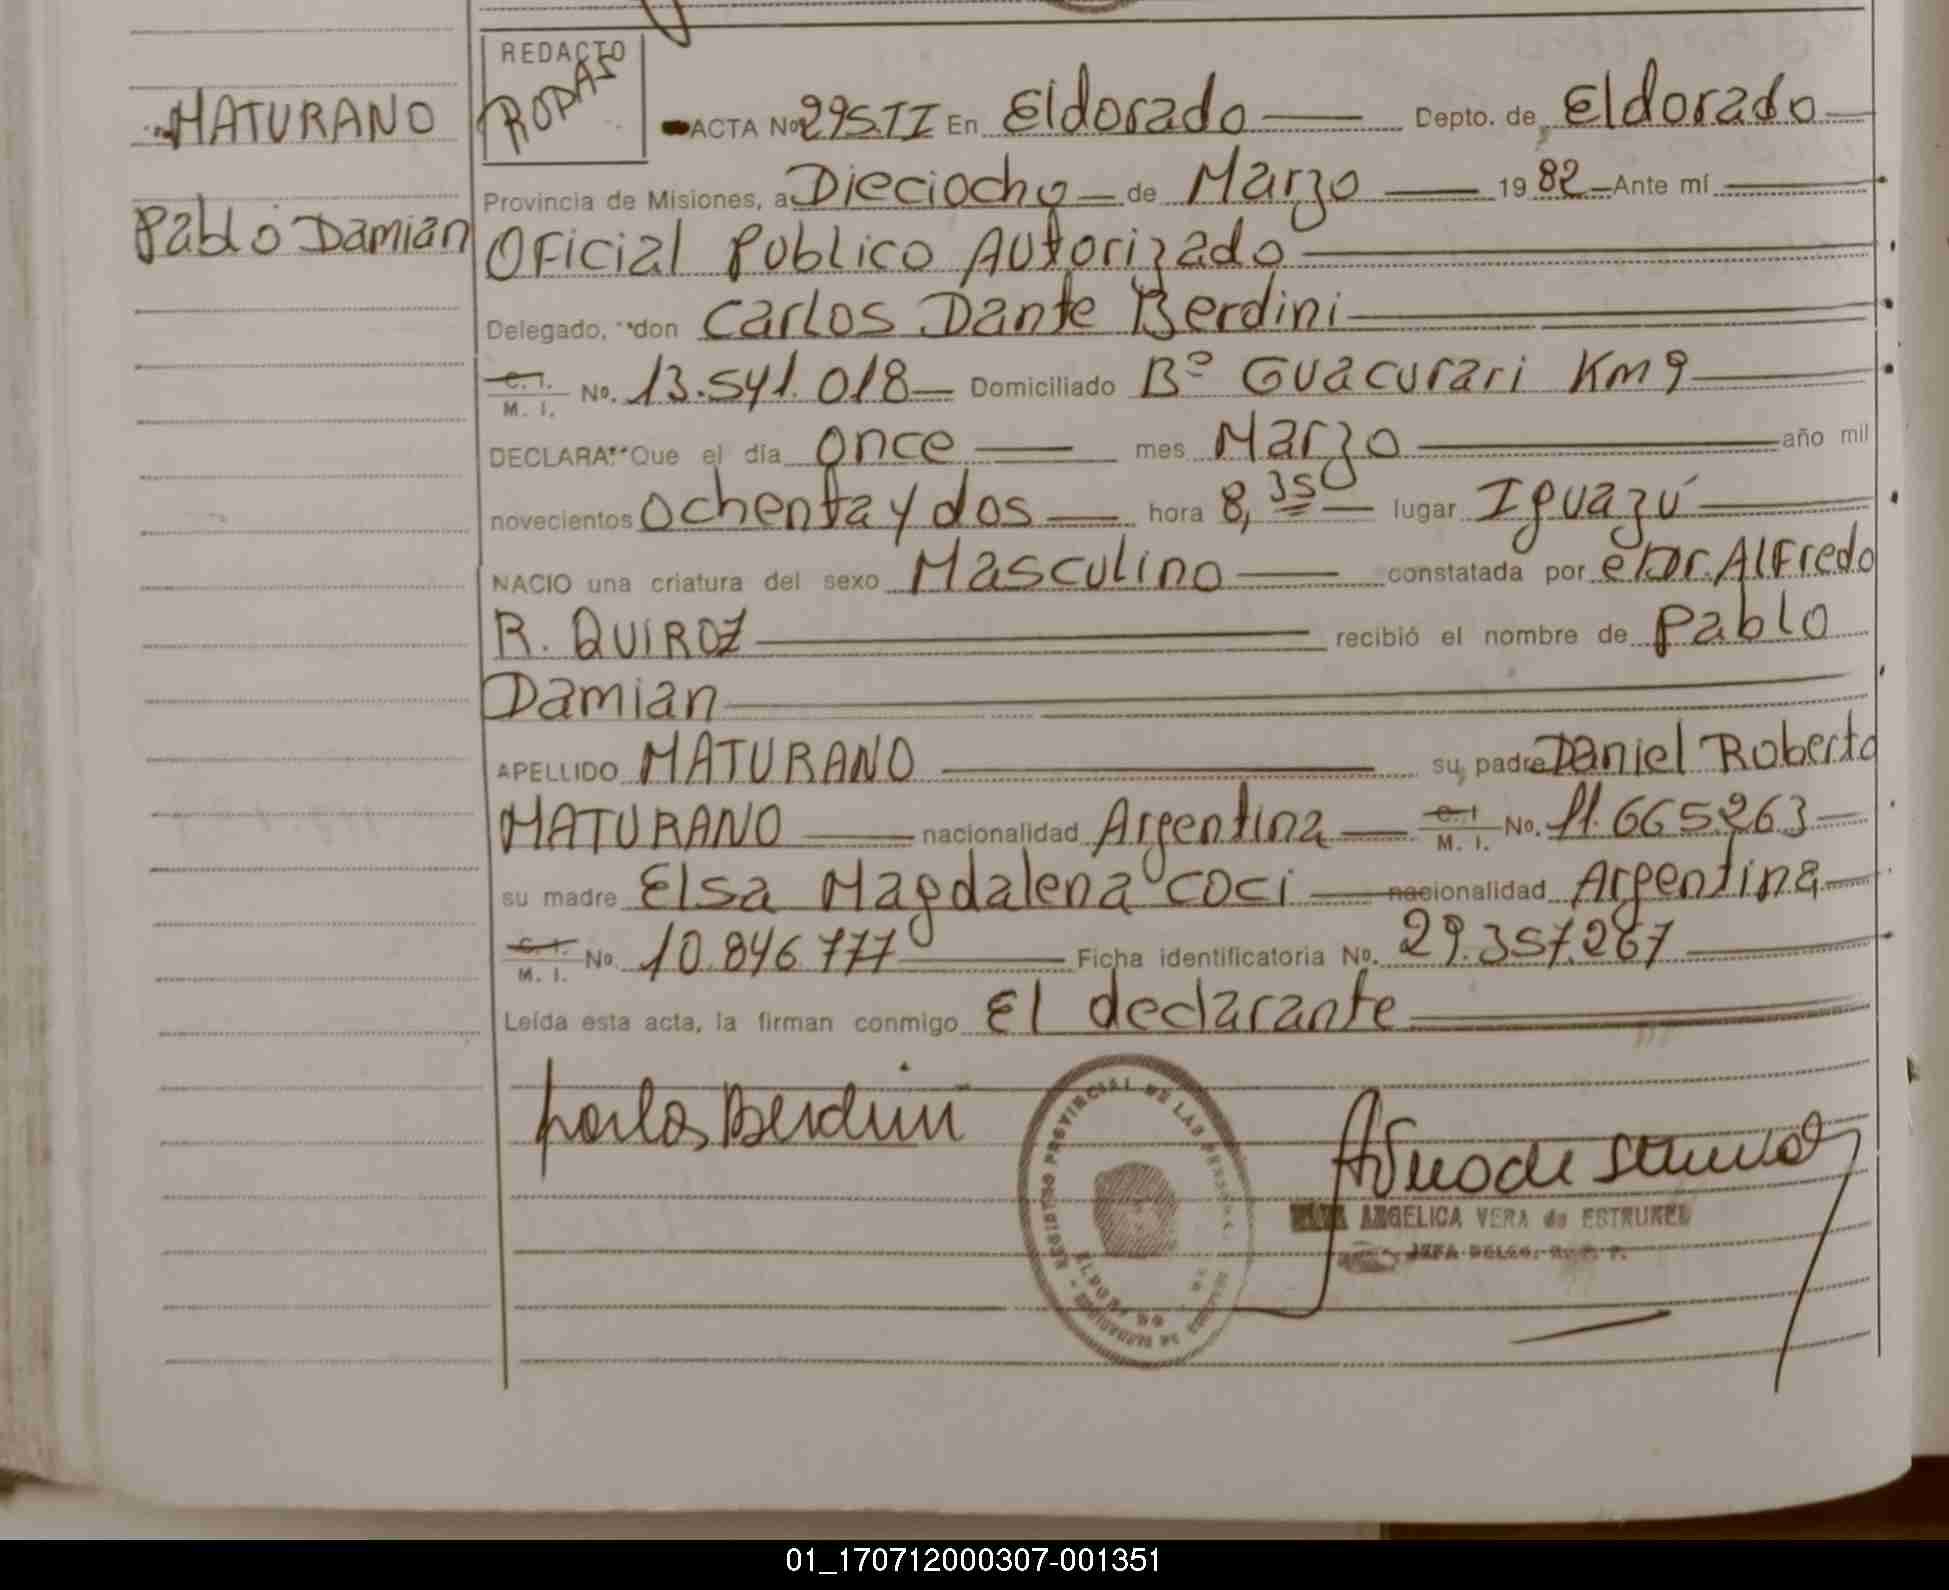 REDACTO
RODAS
MATURANO
Pablo Damian
ACTA No 295.II En Eldorado Depto. de Eldorado
Provincia de Misiones, a Dieciocho de Marzo 1982 Ante mí
Oficial Publico Autorizado
Delegado, don Carlos Dante Berdini
C. I. M. I. No. 13.541.018 Domiciliado Bº Guacurari Km 9
DECLARA: Que el día once mes Marzo año mil
novecientos ochenta y dos hora 8,350 lugar Iguazú
NACIO una criatura del sexo Masculino constatada por el Dr. Alfredo
R. QUIROZ recibió el nombre de Pablo
Damian
APELLIDO MATURANO su padre Daniel Roberto
MATURANO nacionalidad Argentina C. I. M. I. No. 11.665.263
su madre Elsa Magdalena Coci nacionalidad Argentina
C. I. M. I. No. 10.846.777 Ficha identificatoria No. 29.357.267
Leída esta acta, la firman conmigo El declarante
Carlos Berdini
REGISTRO PROVINCIAL DE LAS PERSONAS
ELDORADO
ANGELICA VERA de ESTRUKEL
JEFA DELEG. R. P. P.
01_170712000307-001351